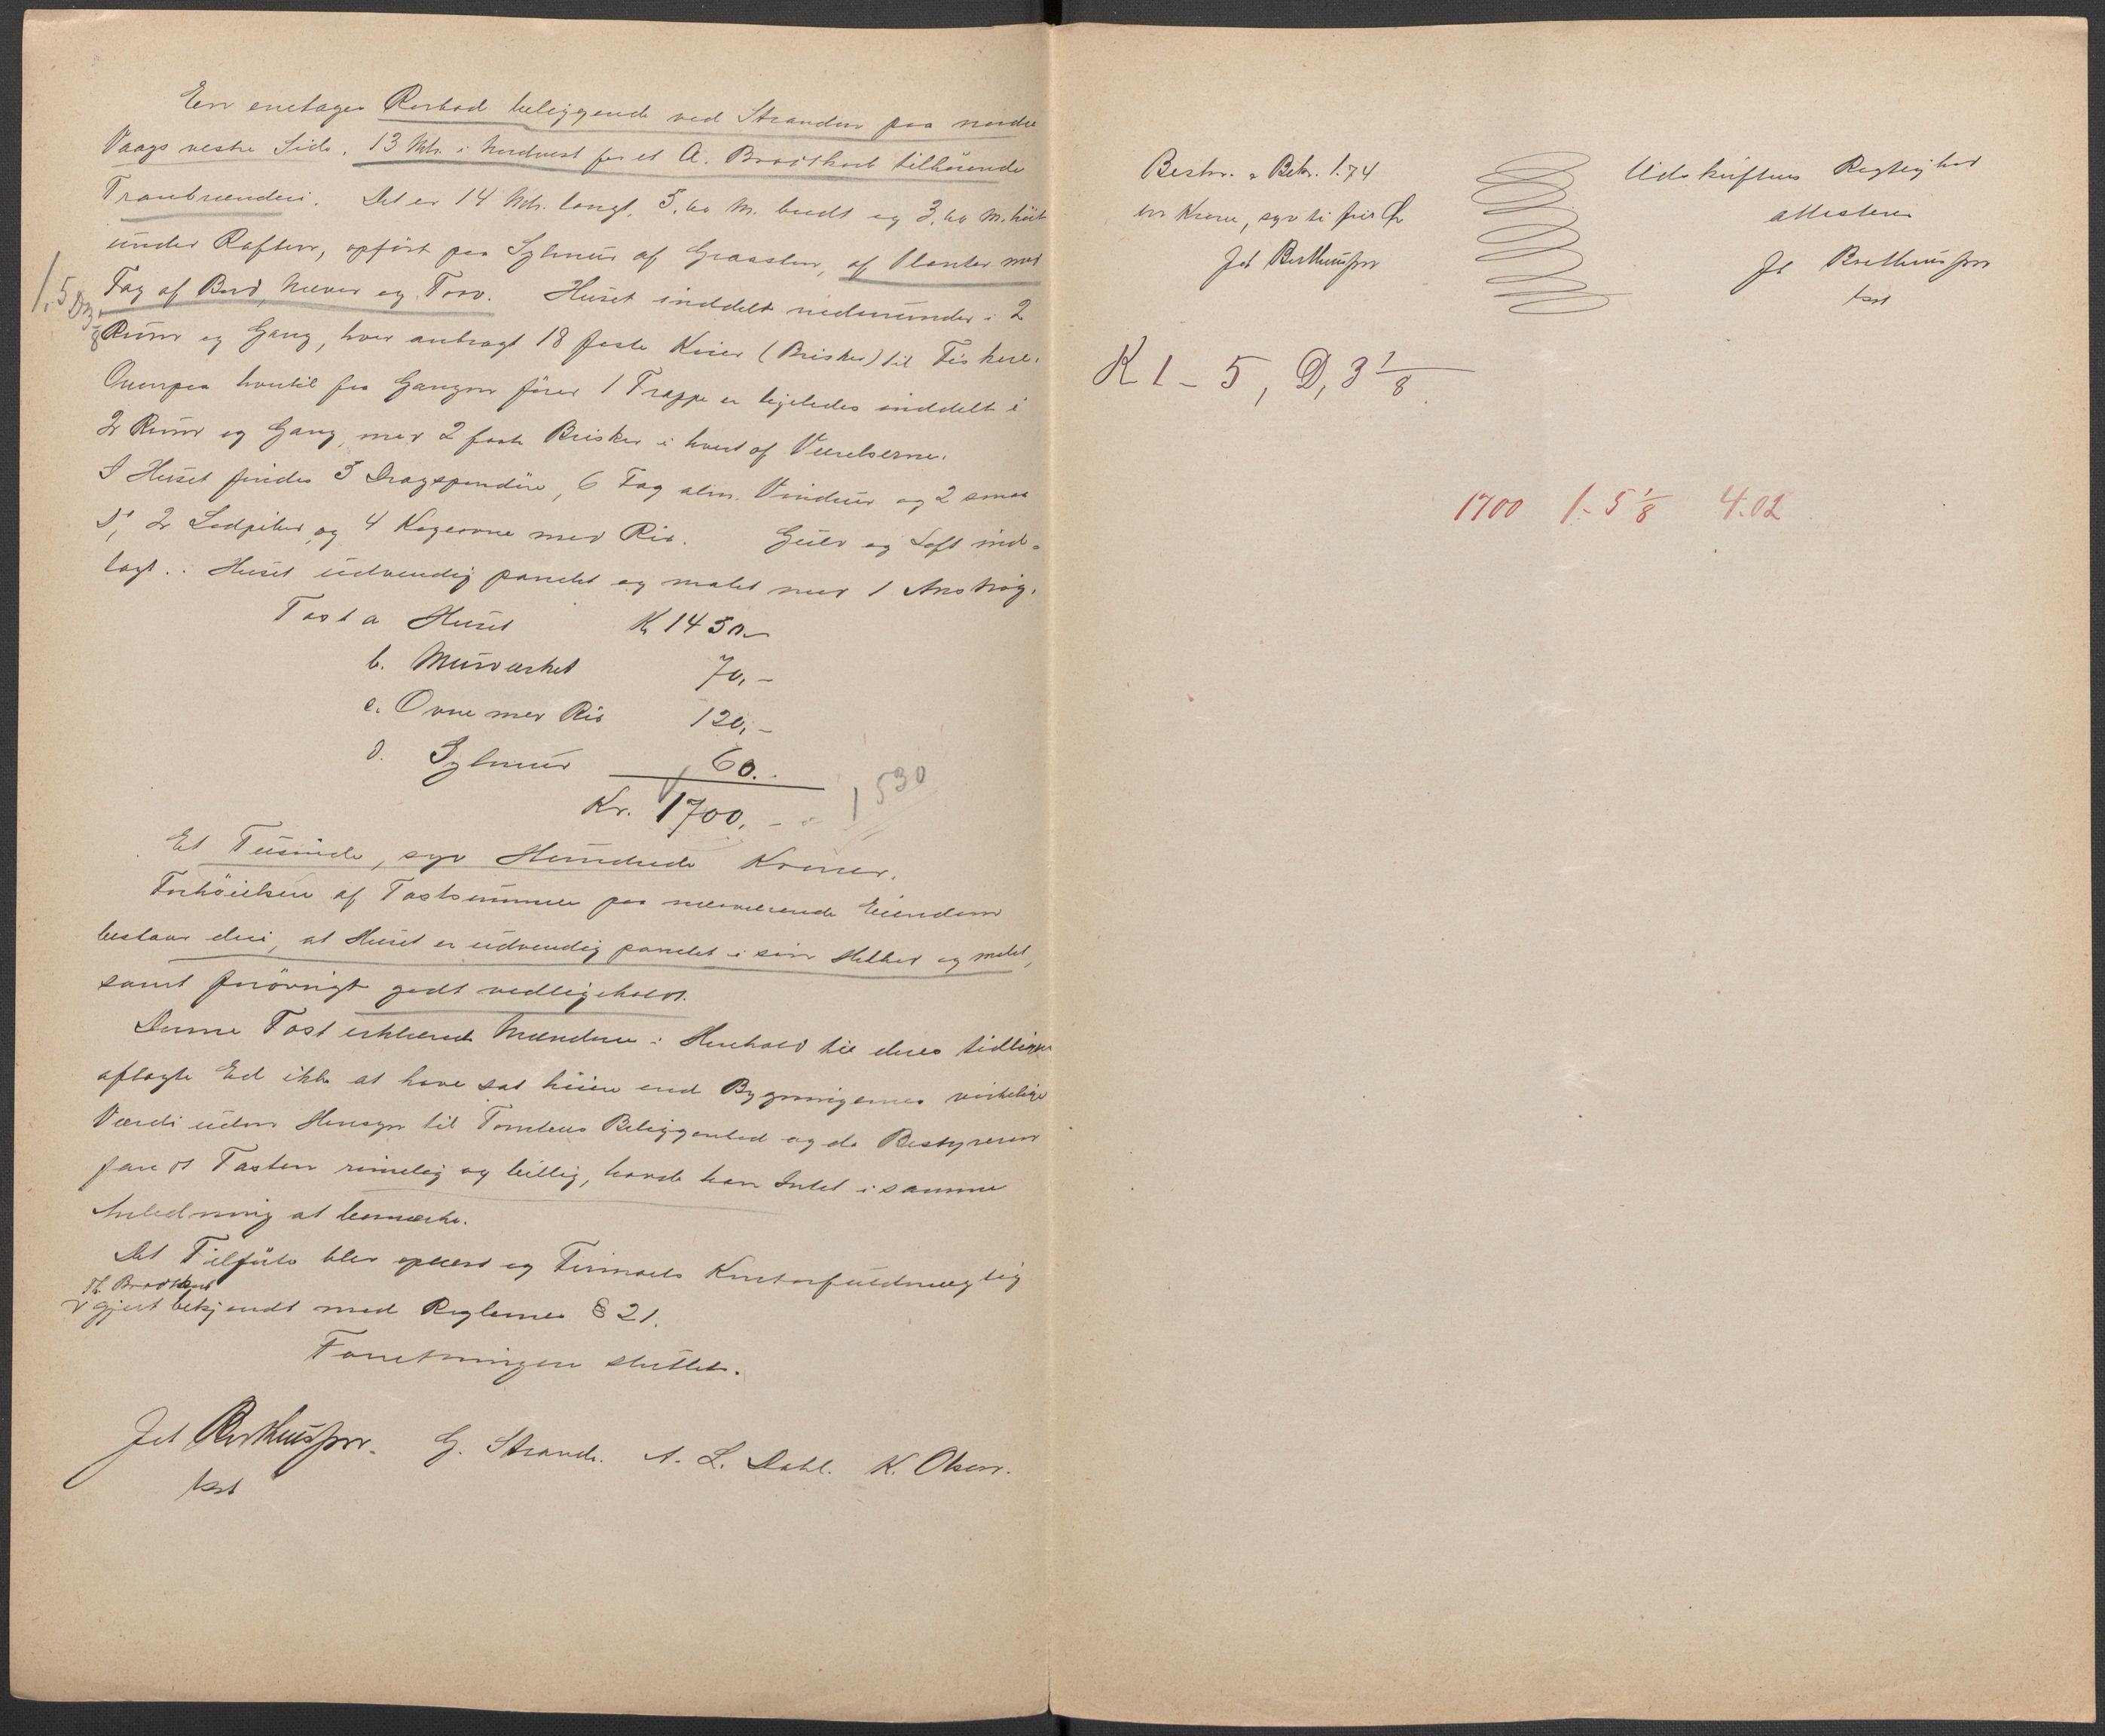 En enetages Rorbod beliggende ved Stranden paa nordre
Vaags vestre Side, 13 Mtr. i Nordvest for et A. Brodtkorb tilhørende
Tranbrænderi. Det er 14 Mtr. langt, 5.60 M. bredt og 3.60 M. høit
under Raften, opført paa Sylmur af Graasten, af Planker med
Tag af Bord, Næver og Torv. Huset inddelt nedenunder i 2
1.5 D 3 1/8
Rum og Gang, hver anbragt 18 faste Køier (Brisker) til Fiskere.
Ovenpaa hvortil fra Gangen fører 1 Trappe er ligeledes inddelt i
2 Rum og Gang, med 2 faste Brisker i hvert af Værelserne.
I Huset findes 3 Dragspendøre, 6 Fag alm. Vinduer og 2 smaa
D°, 2 Lodpiber og 4 Kogeovne med Rør. Gulv og Loft ind-
lagt. Huset udvendig panelet og malet med 1 Anstrøg.
Taxt a Huset K 1450.-
b. Murværket 70,-
c. Ovne med Rør 120,-
d. Sylmur 60..
Kr. 1700.- 1530
Et Tusinde, syv Hundrede Kroner.
Forhøielsen af Taxtsummen paa nærværende Eiendom
bestaar deri, at Huset er udvendig panelet i sin Helhed og malet,
samt forøvrigt godt vedligeholdt.
Denne Taxt erklærede Mændene i Henhold til deres tidligere
aflagte Ed ikke at have sat høiere end Bygningernes virkelige
Værdi uden Hensyn til Tomtens Beliggenhed og da Bestyreren
fandt Taxten rimelig og billig, havde han Intet i samme
Anledning at bemærke.
Det Tilførte blev oplæst og Firmaets Kontorfuldmægtig
H. Brodtkorb
v gjort bekjendt med Reglernes § 21.
Forretningen sluttet.
Joh Bertheussen. G. Strand. A. L. Dahl. K. Olsen.
kst
Bestr. s Betr. 1.74
en Krone, syv ti fire Øre
Joh Bertheussen
Udskriftens Rigtighed
attesteres
Joh Bertheussen
kst
K 1 - 5, D, 3 1/8
1700 1-5 1/8 4.02